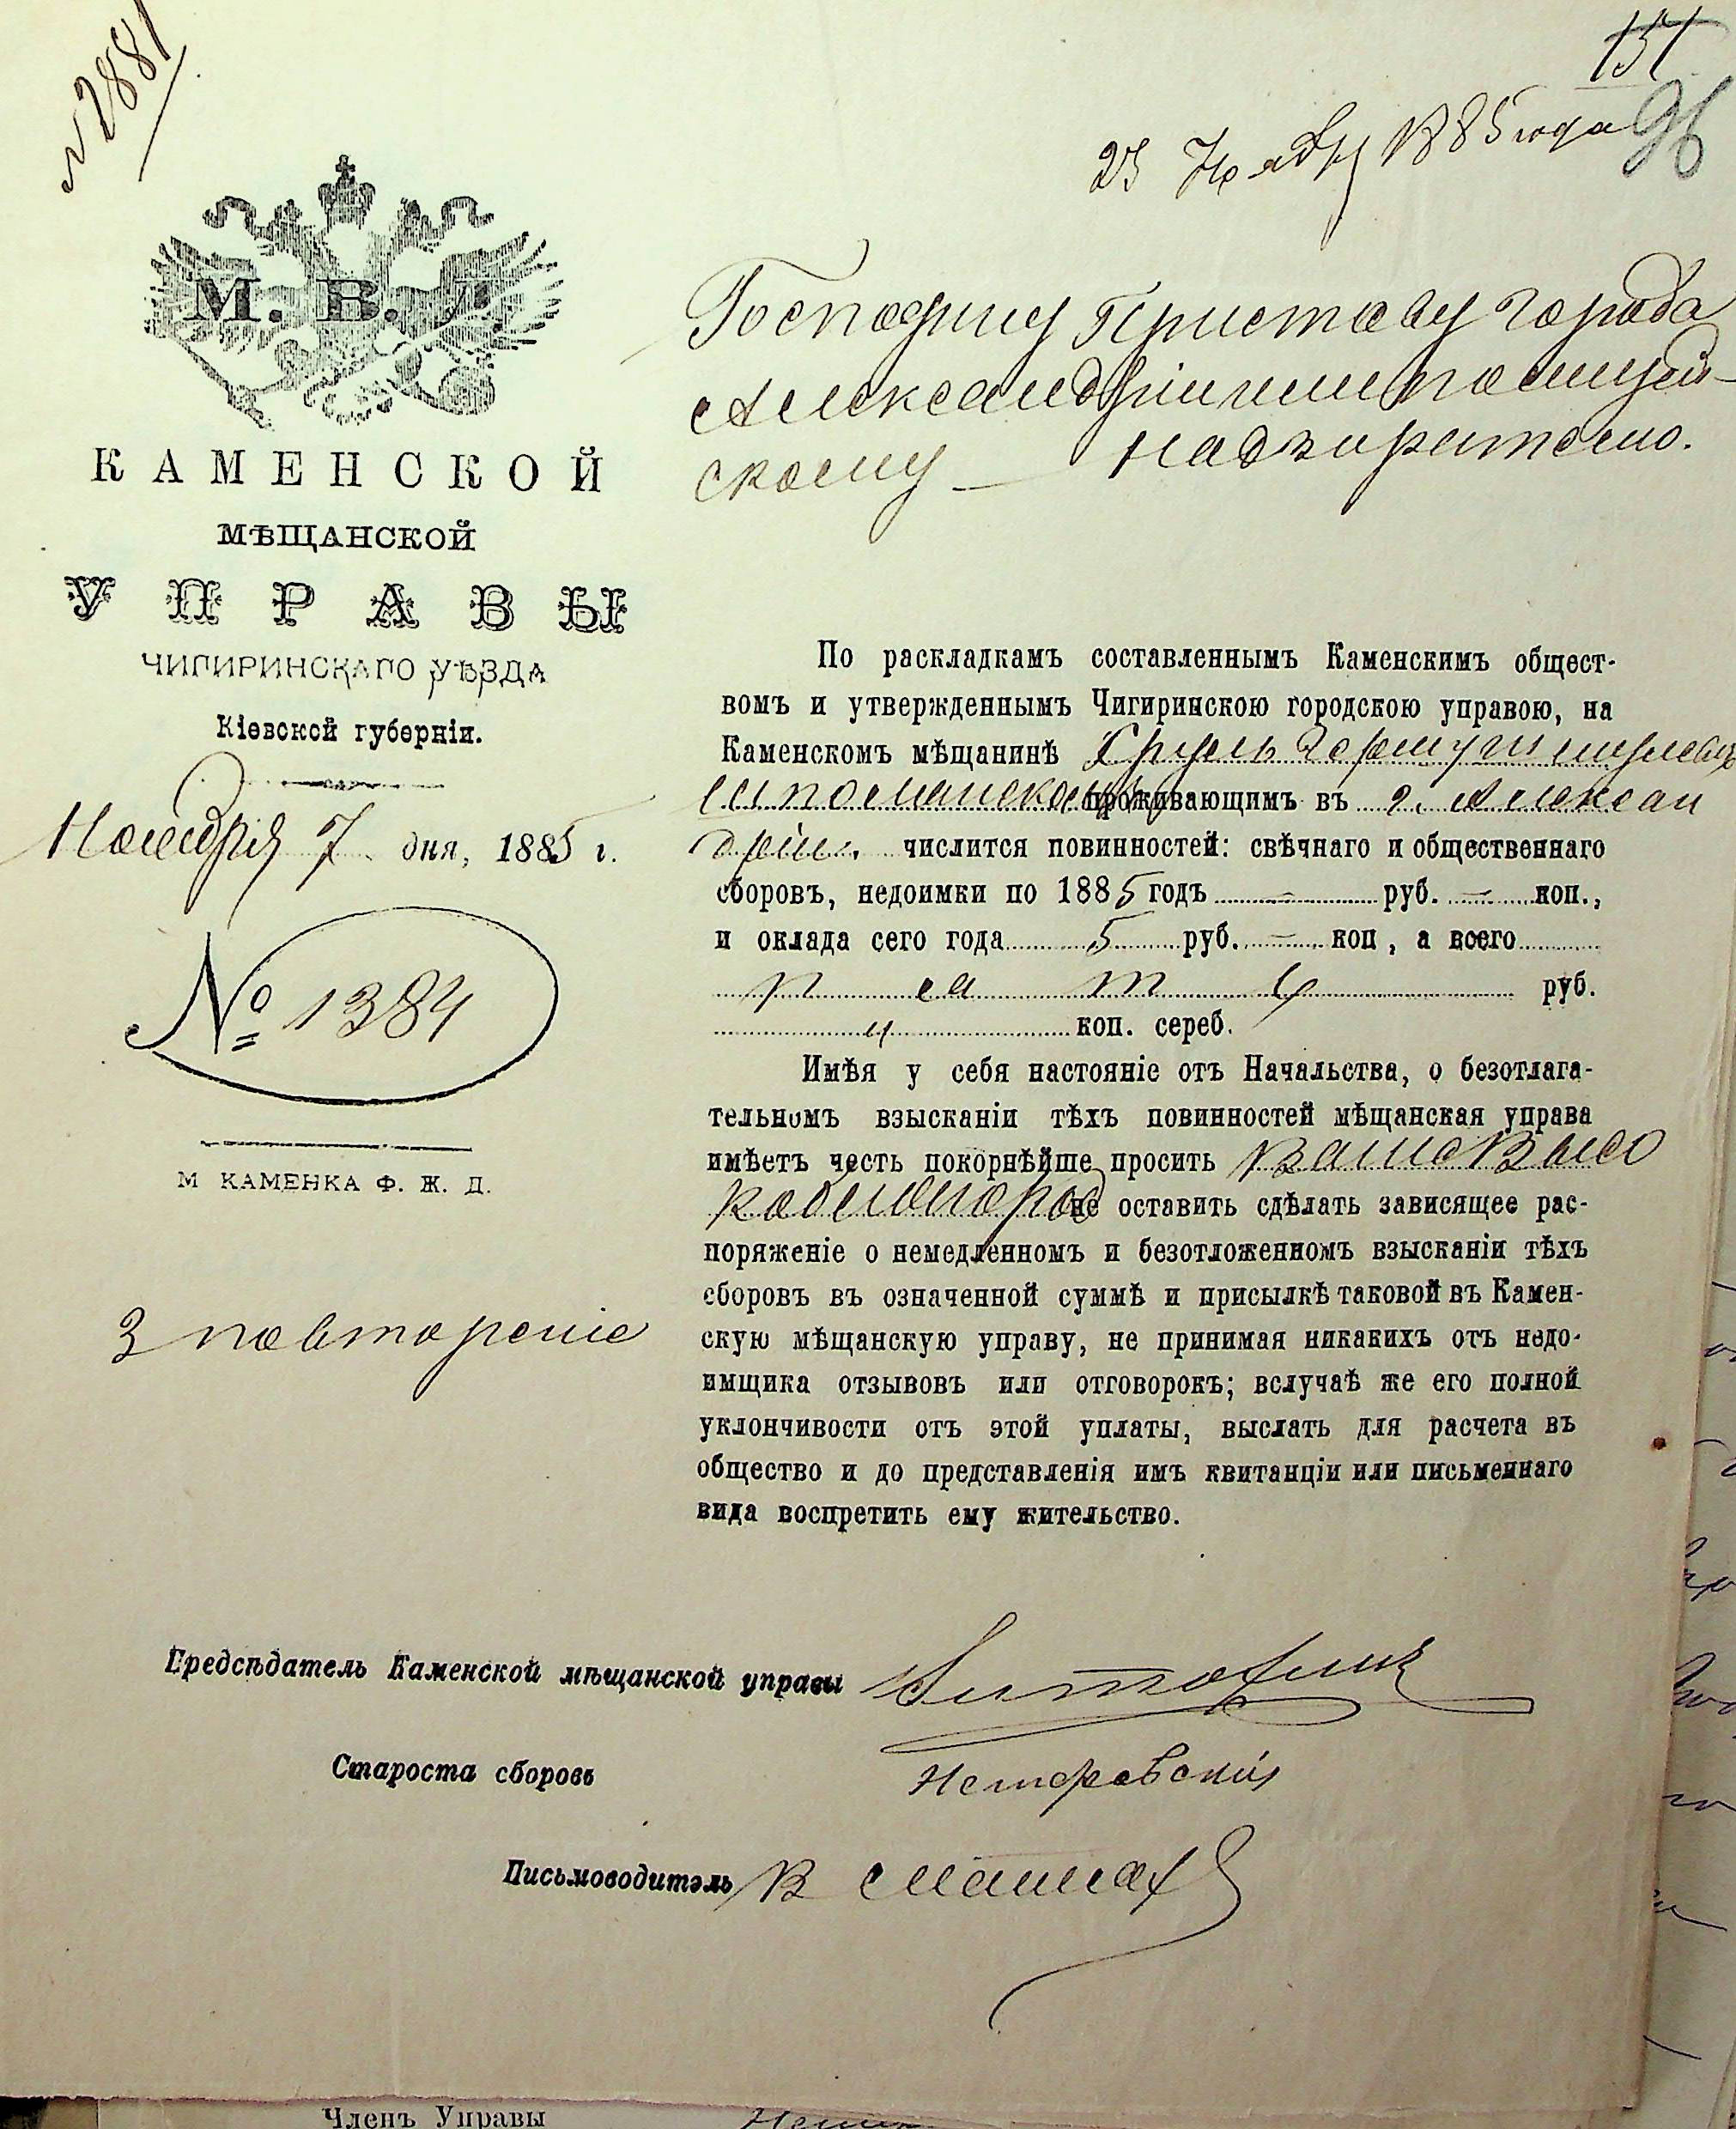 № 2881
151
96
23 Ноября 1885 года
М. В. Д.
КАМЕНСКОЙ
МѢЩАНСКОЙ
УПРАВЫ
ЧИГИРИНСКАГО УѢЗДА
Кіевской губерніи.
Ноября 7 дня, 1885 г.
№ 1384
М КАМЕНКА Ф. Ж. Д.
3 повтореніе
Господину Приставу города
Александріи или полицей-
скому — Надзирателю.
По раскладкамъ составленнымъ Каменскимъ общест-
вомъ и утвержденнымъ Чигиринскою городскою управою, на
Каменскомъ мѣщанинѣ
проживающимъ въ г. Алексан
дріи. числится повинностей: свѣчнаго и общественнаго
сборовъ, недоимки по 1885 годъ — руб. — коп.,
и оклада сего года 5 руб. — коп, а всего
пять руб.
коп. сереб.
Имѣя у себя настояніе отъ Начальства, о безотлага-
тельномъ взысканіи тѣхъ повинностей мѣщанская управа
имѣетъ честь покорнѣйше просить Ваше Высо
коблагород не оставить сдѣлать зависящее рас-
поряженіе о немедленномъ и безотложенномъ взысканіи тѣхъ
сборовъ въ означенной суммѣ и присылкѣ таковой въ Камен-
скую мѣщанскую управу, не принимая никакихъ отъ недо-
имщика отзывовъ или отговорокъ; вслучаѣ же его полной
уклончивости отъ этой уплаты, выслать для расчета въ
общество и до представленія имъ квитанціи или письменнаго
вида воспретить ему жительство.
Предсѣдатель Каменской мѣщанской управы
Староста сборовъ
Письмоводитель В
Членъ Управы